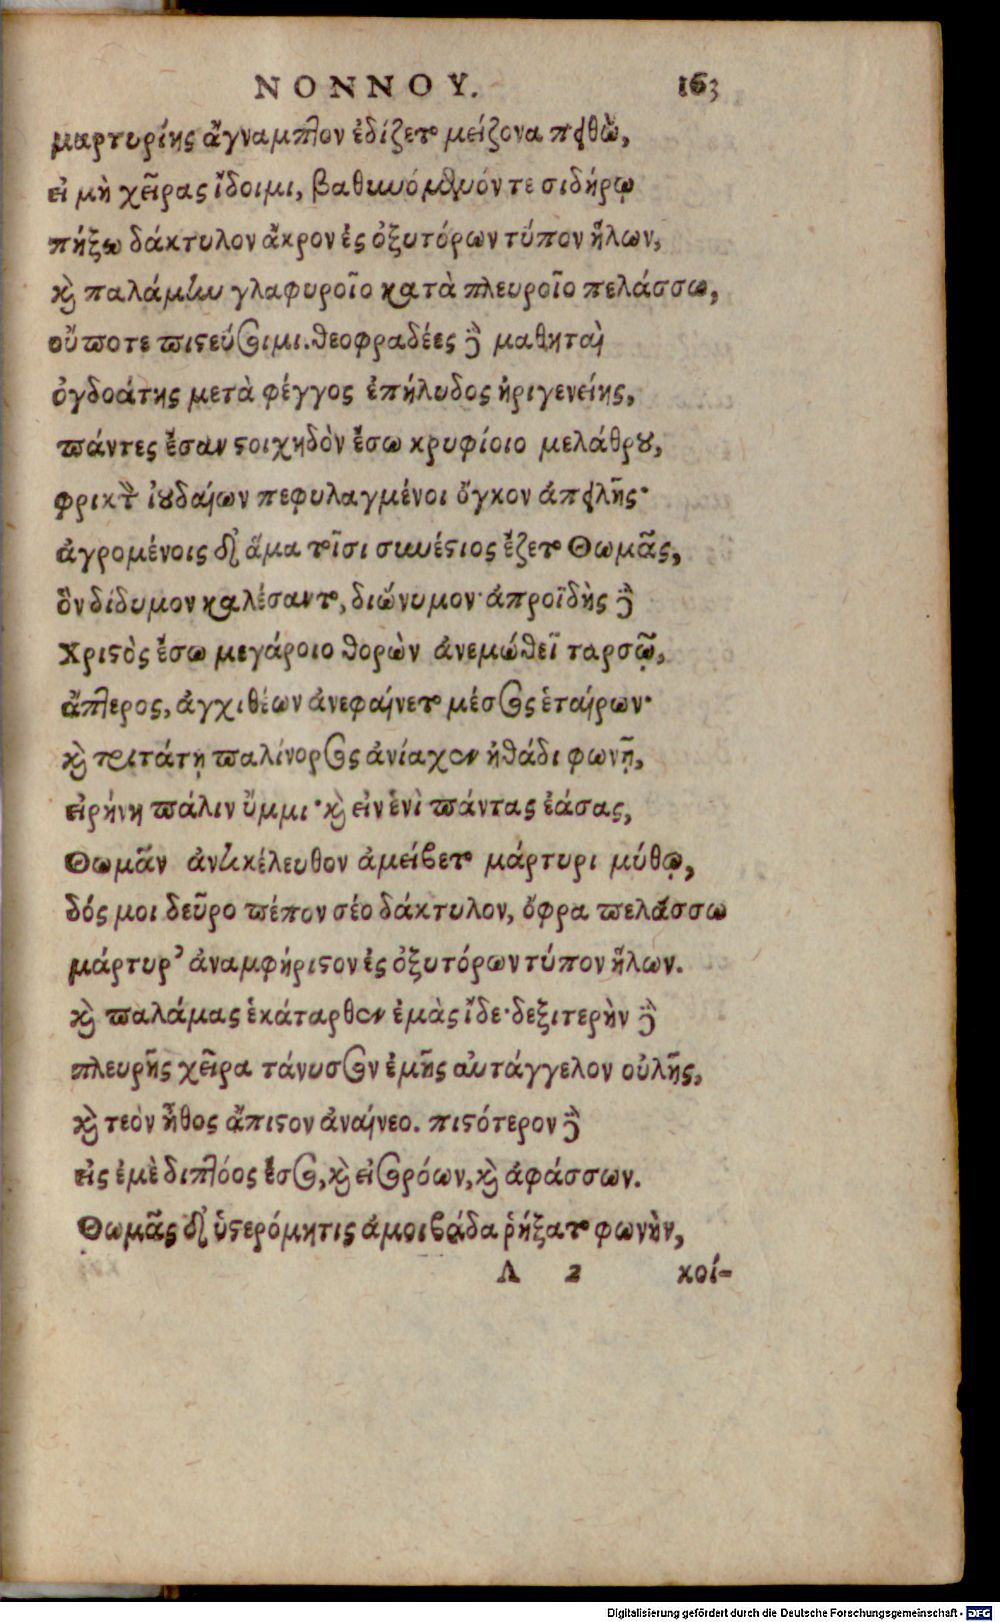 ΝΟΝΝΟΥ. 163
μαρτυρίης ἄγναμπτον ἐδίζετο μείζονα πειθὼ,
εἰ μὴ χεῖρας ἴδοιμι, βαθυνόμενόν τε σιδήρῳ
πήξω δάκτυλον ἄκρον ἐς ὀξυτόρων τύπον ἥλων,
καὶ παλάμην γλαφυροῖο κατὰ πλευροῖο πελάσσω,
οὔποτε πιστεύσοιμι. θεοφραδέες δὲ μαθηταὶ
ὀγδοάτης μετὰ φέγγος ἐπήλυδος ἠριγενείης,
πάντες ἔσαν στοιχηδὸν ἔσω κρυφίοιο μελάθρου,
φρικτὸν ἰουδαίων πεφυλαγμένοι ὄγκον ἀπειλῆς·
ἀγρομένοις δ' ἅμα τοῖσι συνέστιος ἕζετο Θωμᾶς,
ὃν δίδυμον καλέσαντο, διώνυμον· ἀπροϊδὴς δὲ
Χριστὸς ἔσω μεγάροιο θορὼν ἀνεμώδεϊ ταρσῷ,
ἄπτερος, ἀγχιθέων ἀνεφαίνετο μέσσος ἑταίρων·
καὶ τριτάτῃ παλίνορσος ἀνίαχεν ἠθάδι φωνῇ,
εἰρήνη πάλιν ὔμμι· καὶ εἰν ἑνὶ πάντας ἐάσας,
Θωμᾶν ἀνηκέλευθον ἀμείβετο μάρτυρι μύθῳ,
δός μοι δεῦρο πέπον σέο δάκτυλον, ὄφρα πελάσσω
μάρτυρ' ἀναμφήριστον ἐς ὀξυτόρων τύπον ἥλων.
καὶ παλάμας ἑκάτερθεν ἐμὰς ἴδε· δεξιτερὴν δὲ
πλευρῆς χεῖρα τάνυσσον ἐμῆς αὐτάγγελον οὐλῆς,
καὶ τεὸν ἦθος ἄπιστον ἀναίνεο. πιστότερον δὲ
εἰς ἐμὲ διπλόος ἔσσο, καὶ εἰσορόων, καὶ ἀφάσσων.
Θωμᾶς δ' ὑστερόμητις ἀμοιβάδα ῥήξατο φωνὴν,
Λ 2 κοί-
Digitalisierung gefördert durch die Deutsche Forschungsgemeinschaft - DFG